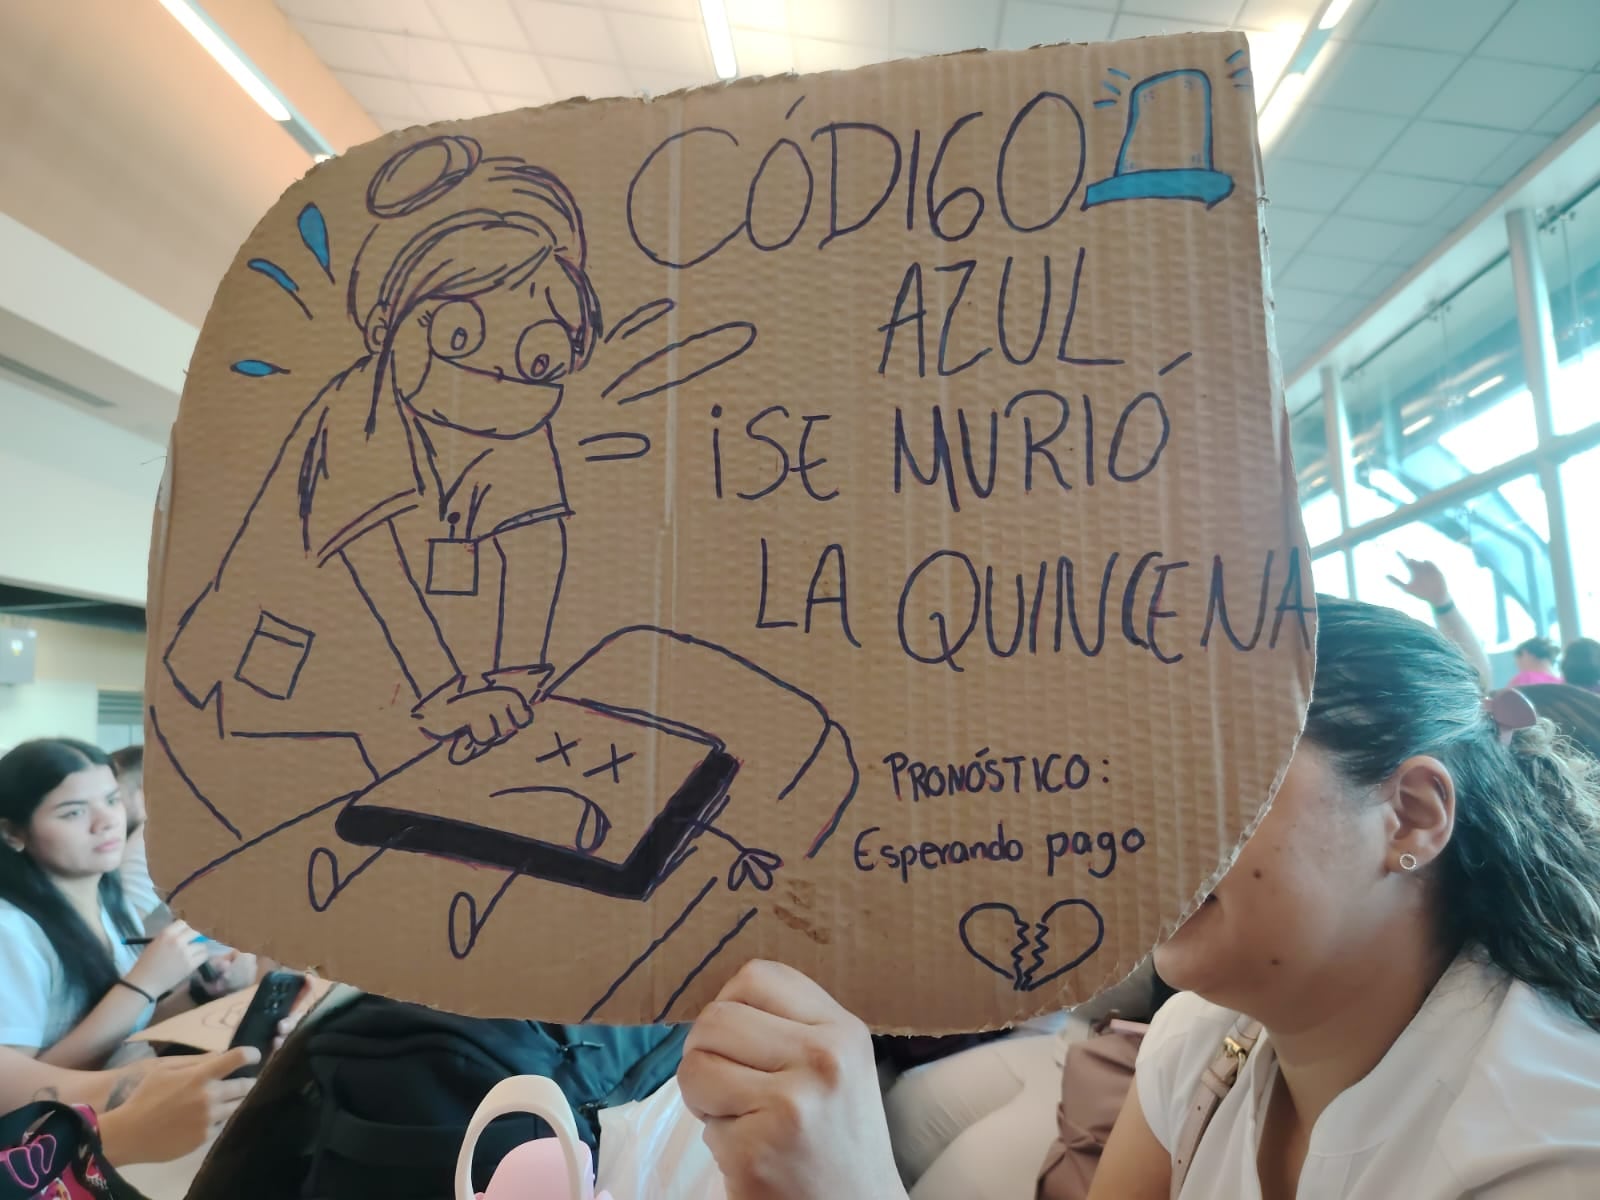 CÓDIGO
AZUL
¡SE MURIÓ
LA QUINCENA
PRONÓSTICO:
Esperando pago